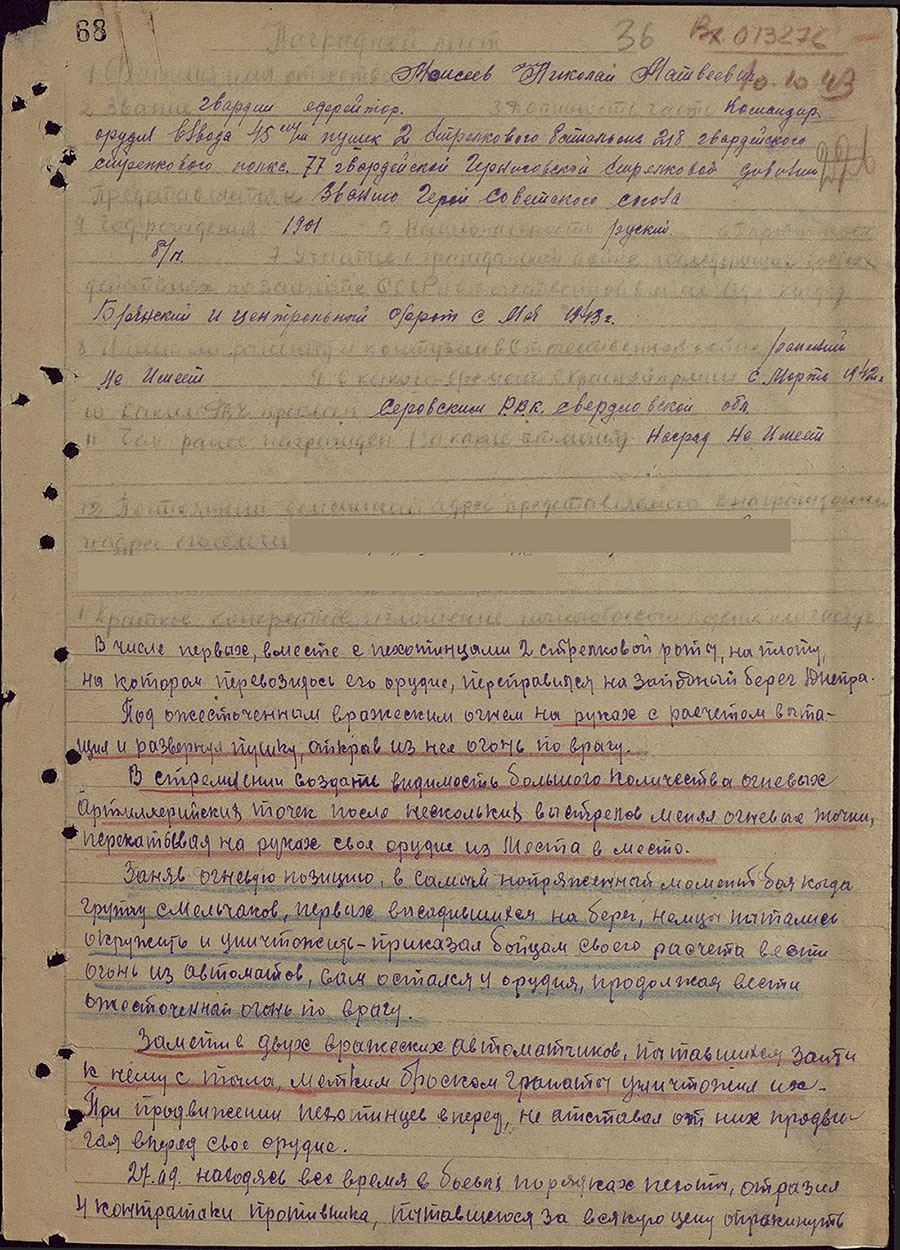 68
Наградной лист
36
Вх 013276
10.10.43
1. Фамилия имя отчество Моисеев Николай Матвеевич
2. Звание гвардии ефрейтор. 3. Должность часть Командир
орудия взвода 45 м/м пушек 2 Стрелкового батальона 218 гвардейского
стрелкового полка. 77 гвардейской Черниговской Стрелковой дивизии
Представляется Званию Герой Советского союза
4 Год рождения 1901 5 Национальность руский
б/п. 7 Участие в гражданской войне последующих боевых
действиях по защите СССР и отечественной войне
Брянский и Центральный фронт с Мая 1943г.
8 Имеет ли ранения и контузии в отечественной войне ранений
Не Имеет 9 с какого времени в Красной армии с Марта 1942г
10 Каким РВК призван Серовским РВК. Свердловской обл.
11 Чем ранее награжден (за какие отличия) Наград Не Имеет
12) Постоянный домашний адрес представляемого к награждению
и адрес семьи
В числе первых, вместе с пехотинцами 2 стрелковой роты, на плоту,
на котором перевозилось его орудие, переправился на западный берег Днепра.
Под ожесточенным вражеским огнем на руках с расчетом выта-
щил и развернул пушку, открыв из нее огонь по врагу.
В стремлении создать видимость большого количества огневых
артиллерийских точек после нескольких выстрелов менял огневые точки,
перекатывая на руках свое орудие из места в место.
Заняв огневую позицию, в самый напряженный момент боя когда
группу смельчаков, первых высадившихся на берег, немцы пытались
окружить и уничтожить – приказал бойцам своего расчета вести
огонь из автоматов, сам остался у орудия, продолжая вести
ожесточенный огонь по врагу.
Заметив двух вражеских автоматчиков, пытавшихся зайти
к нему с тыла, метким броском гранаты уничтожил их.
При продвижении пехотинцев вперед, не отставал от них продви-
гая вперед свое орудие.
27.09. находясь все время в боевых порядках пехоты, отразил
4 контратаки противника, пытавшегося за всякую цену опрокинуть